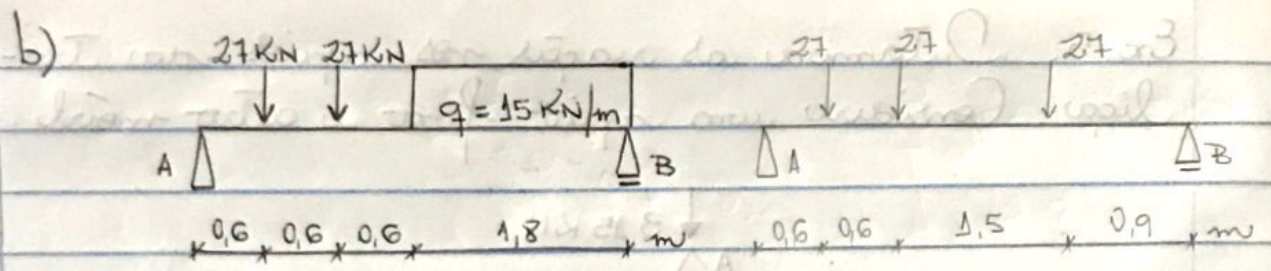 b)
27KN 27KN
q = 15 KN/m
A B
0,6 0,6 0,6 1,8 m
27 27 27
A B
0,6 0,6 1,5 0,9 m